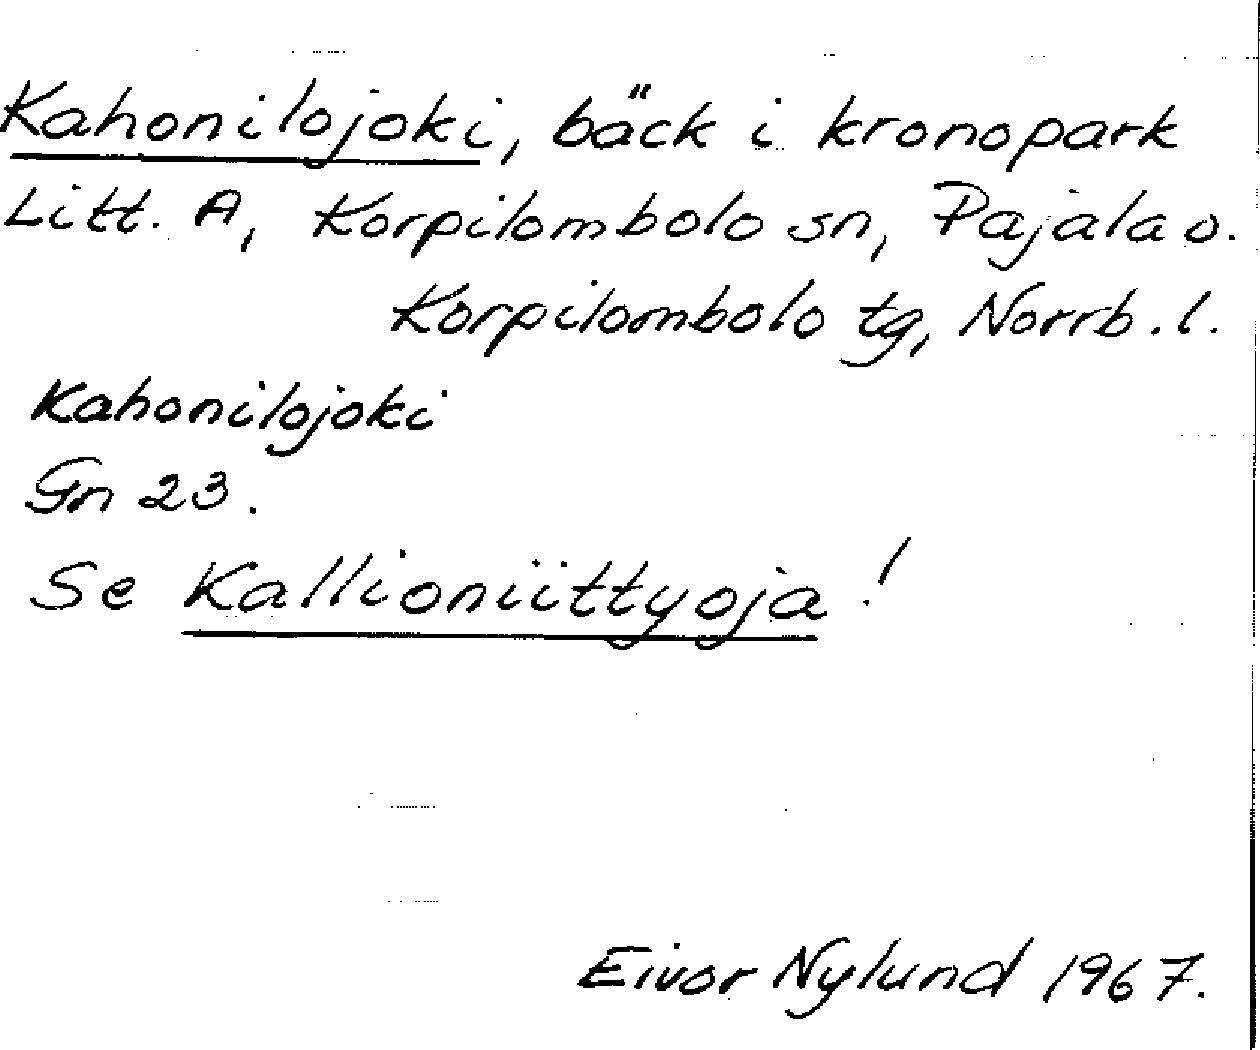 Kahonilojoki, bäck i kronopark
Litt. A, Korpilombolo sn, Pajala o.
Korpilombolo tg, Norrb. l.
Kahonilojoki
Gn 23.
Se Kallioniittyoja!
Eivor Nylund 1967.